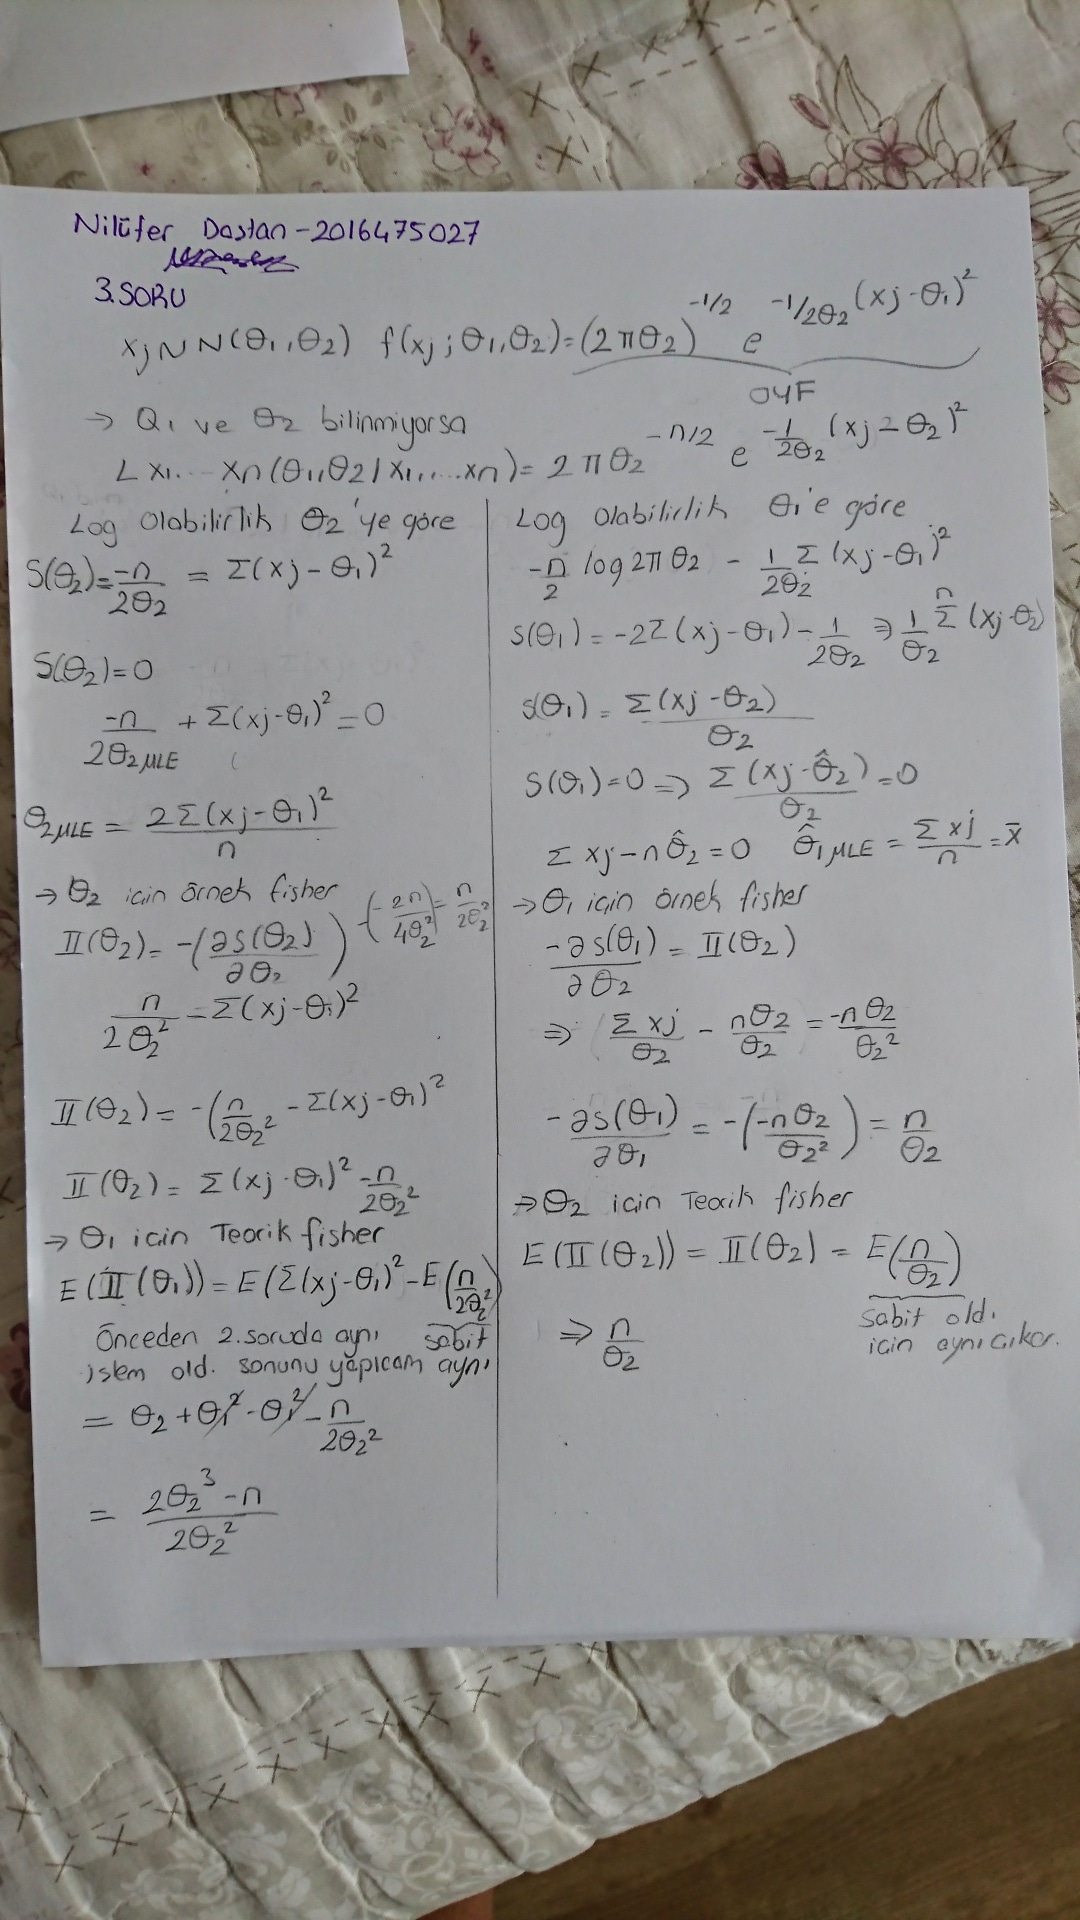 Nilüfer Dastan - 2016475027
3.SORU
xj ~ N(θ1, θ2) f(xj; θ1, θ2) = (2πθ2)^-1/2 e^-1/2θ2 (xj-θ1)^2
OYF
→ Q1 ve θ2 bilinmiyorsa
L x1.... xn(θ1, θ2 / x1,.....xn) = 2πθ2^-n/2 e^-1/2θ2 (xj-θ2)^2
Log Olabilirlik θ2'ye göre
S(θ2) = -n/2θ2 = Σ(xj-θ1)^2
S(θ2)=0
-n/2θ2MLE + Σ(xj-θ1)^2 = 0
θ2MLE = 2Σ(xj-θ1)^2/n
→ θ2 icin örnek fisher
II(θ2) = -(∂S(θ2)/∂θ2) -(-2n/4θ2^2) = n/2θ2^2
n/2θ2^2 = Σ(xj-θ1)^2
II(θ2) = -(n/2θ2^2 - Σ(xj-θ1)^2
II(θ2) = Σ(xj-θ1)^2 - n/2θ2^2
→ θ1 icin Teorik fisher
E(II(θ1)) = E(Σ(xj-θ1)^2 - E(n/2θ2^2)
Önceden 2.soruda aynı sabit
işlem old. sonunu yapıcam aynı
= θ2 + θ1^2 - θ1^2 - n/2θ2^2
= 2θ2^3 - n/2θ2^2
Log Olabilirlik θ1'e göre
-n/2 log2πθ2 - 1/2θ2 Σ(xj-θ1)^2
S(θ1) = -2Σ(xj-θ1) - 1/2θ2 ⇒ 1/θ2 Σ^n (xj-θ2)
S(θ1) = Σ(xj-θ2)/θ2
S(θ1)=0 ⇒ Σ(xj-θ̂2)/θ2 = 0
Σxj - nθ̂2 = 0 θ̂1MLE = Σxj/n = x̄
→ θ1 icin örnek fisher
-∂S(θ1)/∂θ2 = II(θ2)
⇒ Σxj/θ2 - nθ2/θ2 = -nθ2/θ2^2
-∂S(θ1)/∂θ1 = -(-nθ2/θ2^2) = n/θ2
→ θ2 icin Teorik fisher
E(II(θ2)) = II(θ2) = E(n/θ2)
sabit old.
icin aynı cıkar.
⇒ n/θ2